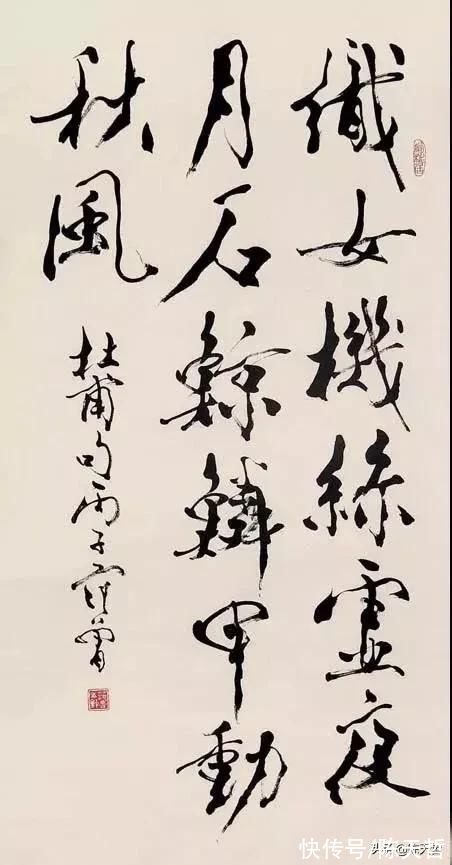 織女機絲虛夜
月石鯨鱗甲動
秋風
杜甫句丙子
快传号/陈天哲